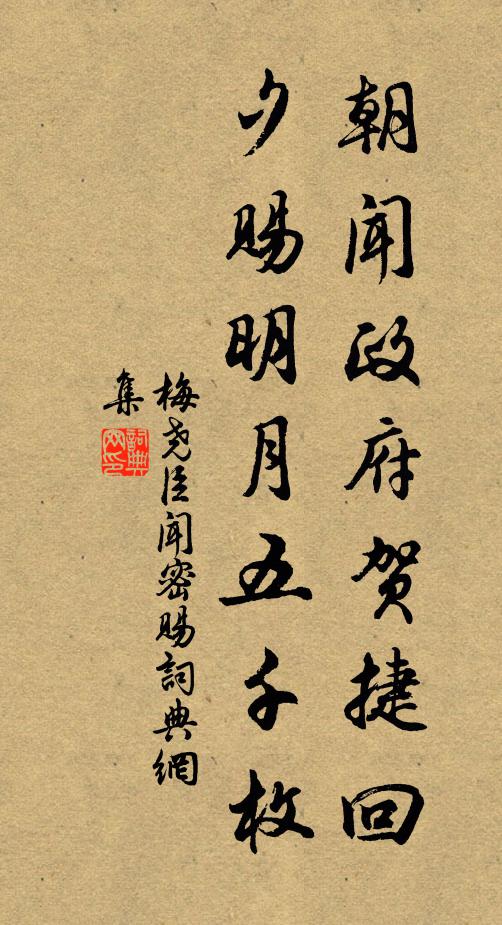 朝闻政府贺捷回
夕赐明月五千枚
梅尧臣闻密赐詞典網
集
詞典
网印